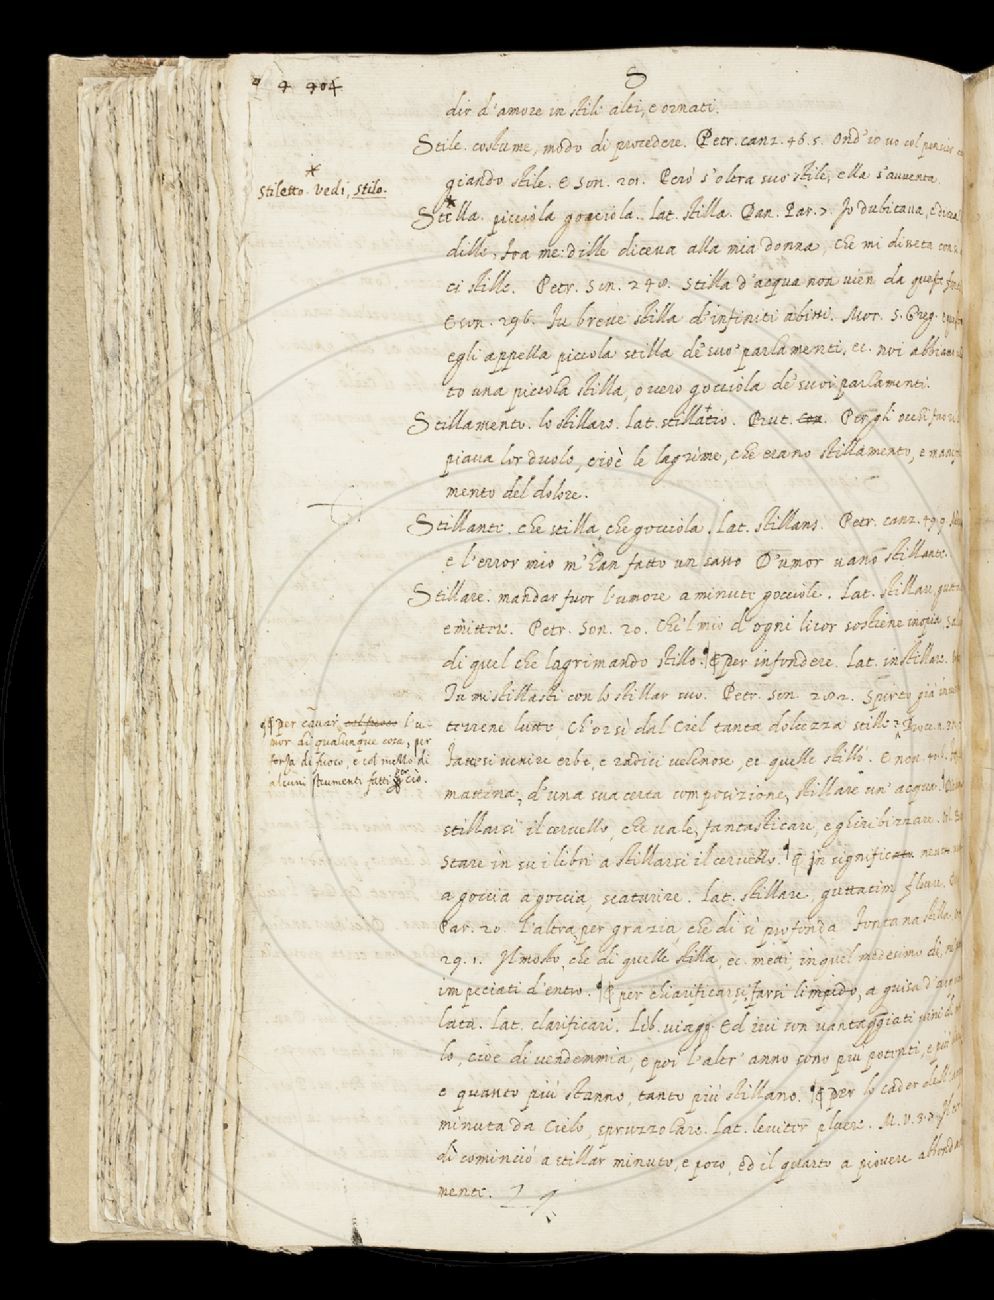 4 404
S
dir d'amore in stili alti, e ornati.
Stile. costume, modo di procedere. Petr. canz. 46. 5. Ond'io vo col pensier
Stiletto. vedi, stilo.
giando stile. E son. 201. Però s'oltra suo stile, ella s'avventa
Stilla. picciola gocciola. Lat. stilla. Dan. Par. 7. Io dubitava, e diceva
dille, fra me: dille diceva alla mia donna, che mi disseta con
ci stille. Petr. Son. 240. stilla d'acqua non vien da
E son. 296. In breve stilla d'infiniti abissi. Mor. S. Greg.
egli appella piccola stilla de' suo' parlamenti, ec. noi abbiamo
to una piccola stilla, overo gocciola de' suoi parlamenti.
Stillamento. lo stillare. Lat. stillatio. But. Per gli occhi fuori
piava lor duolo, cioè le lagrime, che erano stillamento, e
mento del dolore.
Stillante. che stilla, che gocciola. Lat. stillans. Petr. canz. 49. 9.
e l'error mio m'han fatto un sasso D'umor vano stillante.
Stillare. mandar fuor l'umore a minute gocciole. Lat. stillare,
emittere. Petr. Son. 20. Che'l mio d'ogni licor sostiene inopia
di quel che lagrimando stillo. ¶ per infondere. Lat. instillare.
Tu mi stillasti con lo stillar suo. Petr. Son. 282. Spirto già
¶ per cavar col fuoco l'u-
mor di qualunque cosa, per
forza di fuoco, e col mezzo di
alcuni strumenti fatti per ciò.
terrene lutto, Ch'or sì dal Ciel tanta dolcezza stille?
Fattesi venire erbe, e radici velenose, et quelle stillò. E nov.
mattina, d'una sua certa composizione, stillare un'acqua.
stillarsi il cervello, che vale, fantasticare, e ghiribizzare.
Stare in su i libri a stillarsi il cervello. ¶ In significato
a goccia a goccia, scaturire. Lat. stillare, guttatim fluere.
Par. 20. L'altra, per grazia, che di sì profonda Fontana stilla.
29. 1. Il mosto, che di quelle stilla, ec. metti, in quel medesimo dì,
impeciati d'entro. ¶ per chiarificarsi, farsi limpido, a guisa d'acqua
lata. Lat. clarificari. Lib. viagg. Ed ivi son vantaggiati vini
lo, cioè di vendemmia, e poi l'altr'anno sono più potenti, e più
e quanto più stanno, tanto più stillano. ¶ per lo cader della
minuta da Cielo, spruzzolare. Lat. leviter pluere. M. V. 3.
dì cominciò a stillar minuto, e poco, ed il quarto a piovere
mente.